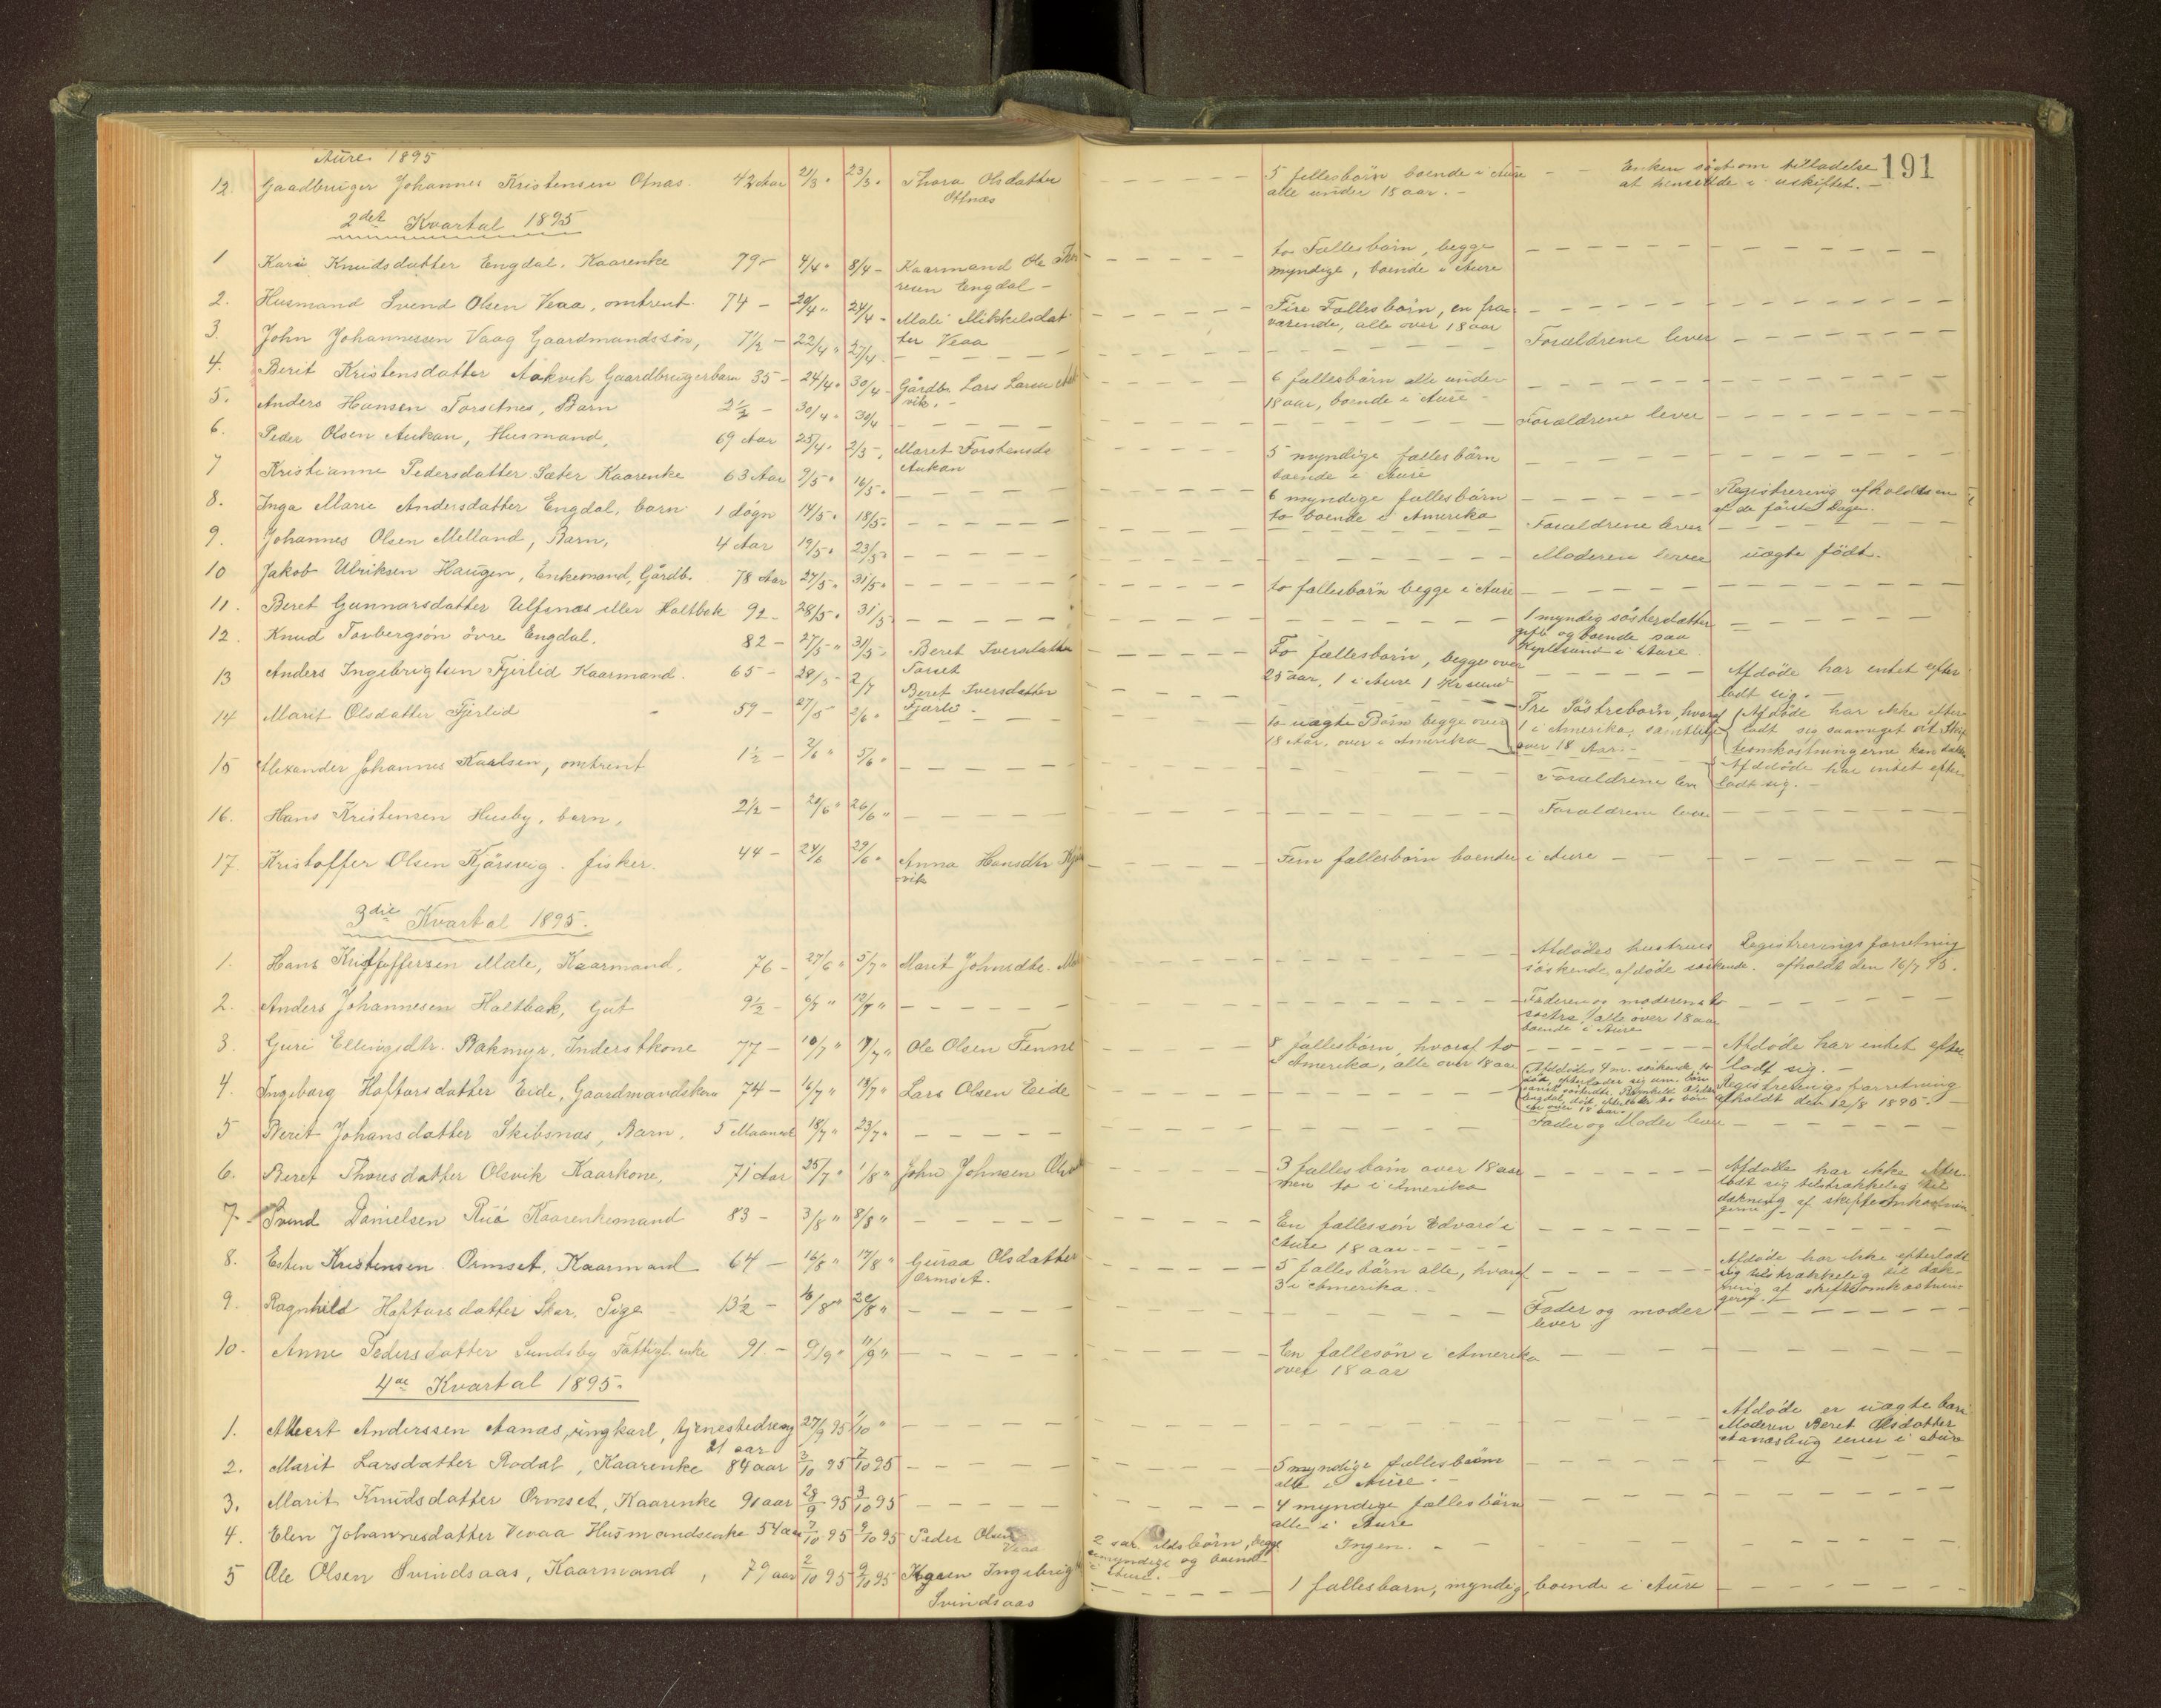 Aure 1895
191
12. Gaadbruger Johannes Kristensen Otnæs. 42 Aar 2/3 " 23/3 " Thora Olsdatter - - - 5 fællesbörn boende i Aure - - Enken sögt om tilladelse
Otnæs alle under 18 aar. - at hensidde i uskiftet. -
2det Kvartal 1895
1 Kari Knudsdatter Engdal. Kaarenke 79 - 4/4 " 8/4 - Kaarmand Ole - - - to Fællesbörn, begge - - -
Engdal - myndige, boende i Aure
2. Husmand Svend Olsen Veaa, omtrent 74 - 20/4 " 24/4 - Mali Mikkelsdat- - - - Fire Fællesbörn, en fra- - - -
ter Veaa værende, alle over 18 aar
3. John Johannessen Vaag Gaardmandssön, 7 1/2 - 22/4 " 27/4 - - - Forældrene lever - - -
4. Berit Kristensdatter Aakvik Gaardbrugerbarn 35 - 24/4 " 30/4 - Gårdb. Lars Larsen - - - 6 fællesbörn alle under - - -
vik. - 18 aar, boende i Aure -
5. Anders Hansen Torsetnes, Barn 2 1/2 - 30/4 " 30/4 - - - Forældrene lever - - -
6. Peder Olsen Aukan, Husmand, 69 Aar 25/4 " 2/5 - Maret Torstensdr - - - 5 myndige fællesbörn - - -
Aukan boende i Aure
7 Kristianne Pedersdatter Sæter Kaarenke 63 Aar 9/5 " 16/5 " - - - 6 myndige fællesbörn - - - Registrering afholdes en
to boende i Amerika af de förste Dage.
8. Inga Marie Andersdatter Engdal, barn 1 dögn 14/5 " 18/5 - - - Forældrene lever
9. Johannes Olsen Melland, Barn, 4 Aar 19/5 " 23/5 - - - Moderen lever uægte födt.
10 Jakob Ulriksen Haugen, Enkemand, Gårdb. 78 Aar 27/5 " 31/5 " - - - to fællesbörn begge i Aure - - -
11. Beret Gunnarsdatter Ulfsnæs eller Holtbak 92 - 28/5 " 31/5 - - - 1 myndig sösterdatter - - -
gift og boende paa
i Aure
12. Knud Torbergsön övre Engdal. 82 - 27/5 - " 31/5 - Beret Iversdatter - - - To fællesbörn, begge over - - -
Torset 25 aar, 1 i Aure 1 Kr.sund
13 Anders Ingebrigtsen Fjerlid Kaarmand. 65 - 28/5 - 2/7 Beret Iversdatter - - - Afdöde har intet efter-
ladt sig. -
14 Marit Olsdatter Fjerlid - 59 - 27/5 2/6 " - - - to uægte Börn begge over Tre Söstrebörn, hvoraf Afdöde har ikke efter
18 Aar. over i Amerika 1 i Amerika, samtlige ladt sig saameget at Skif-
over 18 Aar. - teomkostningerne kan dækkes
15 Alexander Johannes Karlsen, omtrent 1 1/2 - 2/6 " 5/6 " - - - Forældrene lev Afdöde har intet efter-
ladt sig. -
16. Hans Kristensen Husby, barn, 2 1/2 - 20/6 " 26/6 " - - - Forældrene lever
17. Kristoffer Olsen Kjörsvig. fisker. 44 - 24/6 29/6 " Anna Hansdtr - - - Fem fællesbörn boende i Aure - - -
vik
3die Kvartal 1895.
1. Hans Kristoffersen Mæle, Kaarmand, 76 - 27/6 " 5/7 " Marit Johnsdtr. Afdödes hustrues Registreringsforretning
söskende, afdöde söskende. afholdt den 16/7 95.
2. Anders Johannesen Holtbak, Gut 9 1/2 - 6/7 " 12/7 " - - - Faderen og moderens to - - -
alle over 18 aar
boende i Aure
3. Guri Ellingsdtr. Bakmyr, Inderstkone 77 - 10/7 " 19/7 " Ole Olsen Tenne - - - 8 fællesbörn, hvoraf to - - - Afdöde har intet efter
i Amerika, alle over 18 aar ladt sig. -
4. Ingeborg Haftorsdatter Eide, Gaardmandskone 74 - 16/7 " 18/7 " Lars Olsen Eide - - - Afdödes 4 m. söskende Registreringsforretning
afholdt den 12/8 1895. -
5 Berit Johansdatter Skibsnæs, Barn, 5 Maaneder 18/7 " 23/7 " - - - Fader og Moder lever - - -
6. Beret Thoresdatter Olsvik Kaarkone, 71 Aar 25/7 " 1/8 " John Johnsen - - - 3 fællesbörn over 18 aar - - - Afdöde har ikke efter-
men to i Amerika ladt sig tilstrækkelig til
dækning af skifteomkostnin-
gerne. -
7 Svend Danielsen Ruö Kaarenkemand 83 - 3/8 " 8/8 " - - - En fællessön Edvard i - - -
Aure 18 aar - - -
8. Esten Kristensen Ormset, Kaarmand 64 - 16/8 " 17/8 " Guraa Olsdatter - - - 5 fællesbörn alle, hvoraf - - - Afdöde har ikke efterladt
Ormset. 3 i Amerika. - sig tilstrækkelig til dæk-
ning af skifteomkostnin-
gerne. -
9. Ragnhild Haftorsdatter Skar, Pige 13 1/2 - 16/8 " 20/8 " - - - Fader og moder - - -
lever.
10. Anne Pedersdatter Sundsby Fattigl. enke 91 - 9/9 " 11/9 " - - - En fællesön i Amerika - - -
over 18 aar
4de Kvartal 1895.
1. Albert Anderssen Aanæs, ungkarl, 27/9 95 1/10 " - - - Afdöde er uægte barn
21 aar Moderen Beret Olsdatter
lever i Aure
2. Marit Larsdatter Rodal, Kaarenke 84 aar 3/10 95 7/10 95 - - - 5 myndige fællesbörn - - -
alle i Aure. -
3. Marit Knudsdatter Ormset, Kaarenke 91 aar 28/9 95 3/10 95 - - - 4 myndige fællesbörn - - -
alle i Aure
4. Elen Johannesdatter Vevaa Husmandsenke 54 aar 7/10 95 9/10 95 Peder Olsen 2 særkuldsbörn, begge Ingen. - - -
Veaa myndige og boende
i Aure.
5 Ole Olsen Svindsaas, Kaarmand, 79 aar 2/10 95 9/10 95 Karen Ingebrig - - - 1 fællesbarn, myndig, boende i Aure - - -
Svindsaas